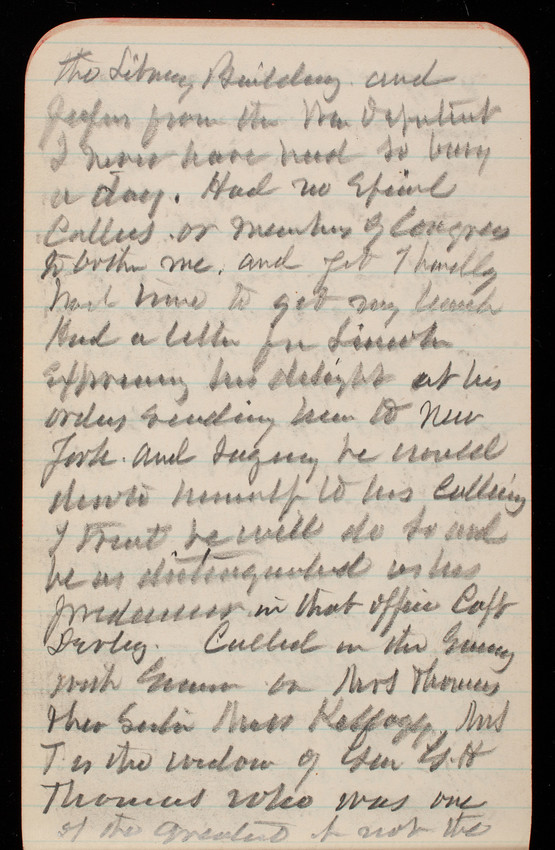 the Library Building and
from the War Department
I never have had so busy
a day. Had no Special
Callers or members of Congress
to bother me, and yet I hardly
had time to get my lunch
Had a letter from Lincoln
Expressing his delight at his
orders sending him to New
York and saying he would
devote himself to his Calling
I trust he will do so and
be as distinguished as his
predecessor in that office Capt
Derby. Called in the Evening
with on Mrs Thomas
Miss Kellogg, Mrs
T is the widow of Gen G.H
Thomas who was one
of the greatest if not the